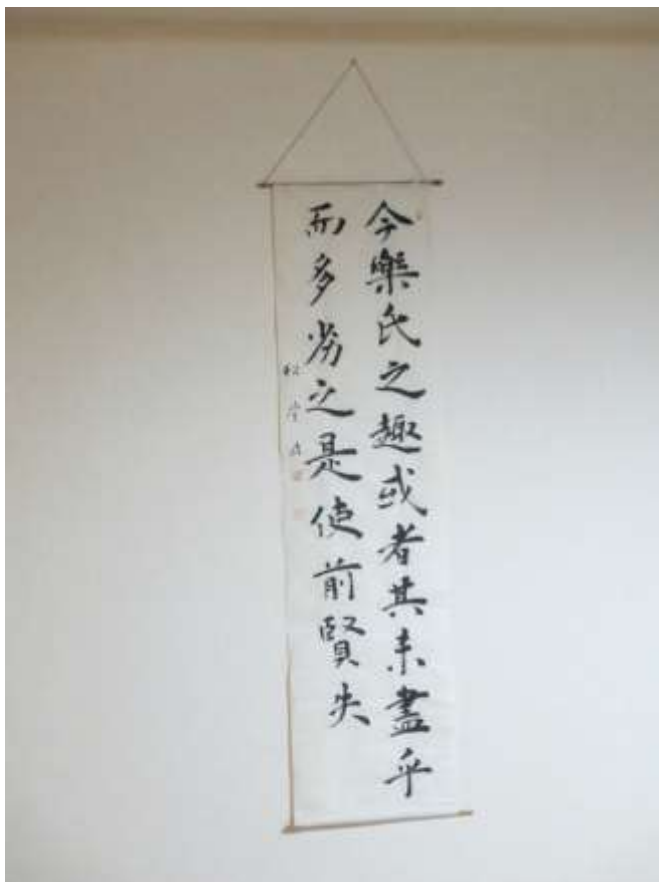 今樂氏之趣或者其未盡乎
而多劣之是使前賢失